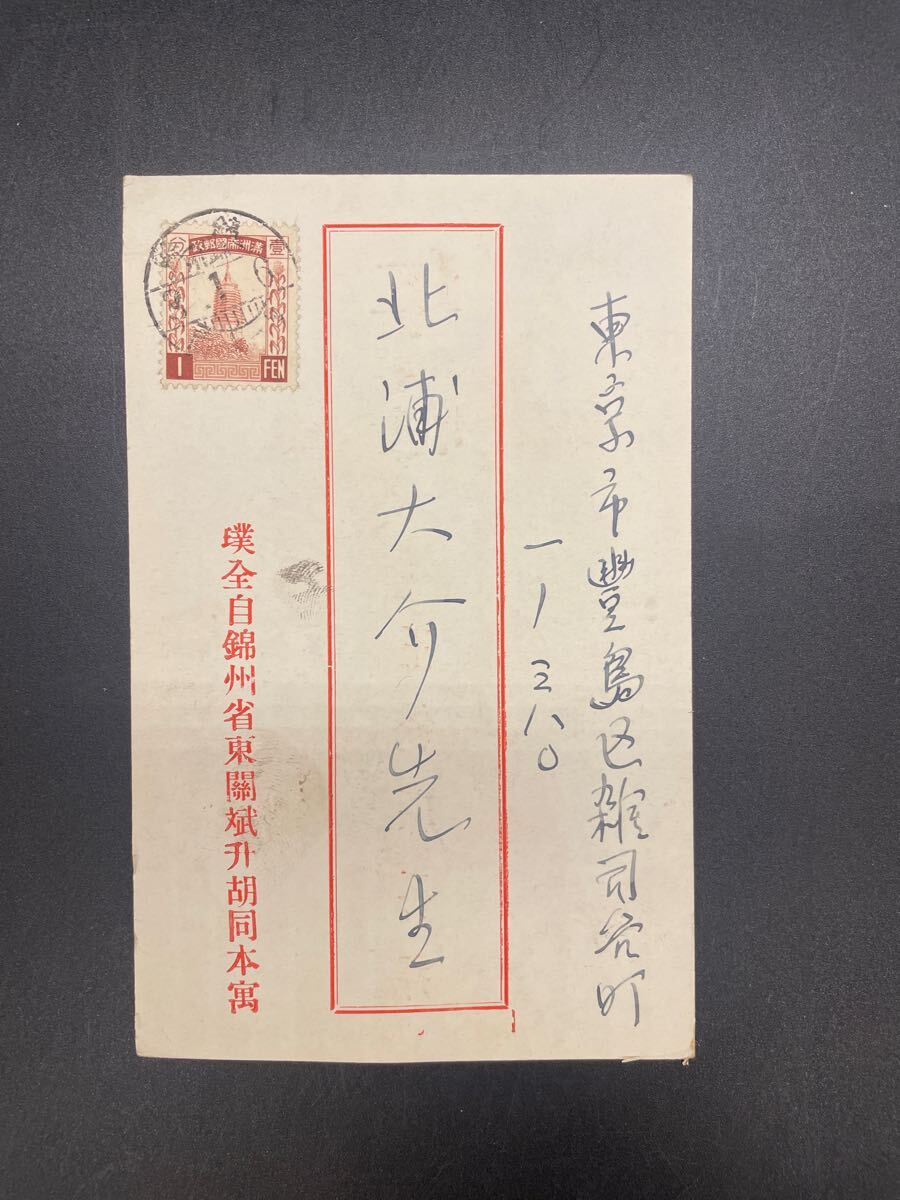 東京市豐島区雑司谷町
一ノ三八〇
北浦大介先生
璞全自錦州省東關斌升胡同本寓
壹 滿洲帝國郵政 分
1 FEN